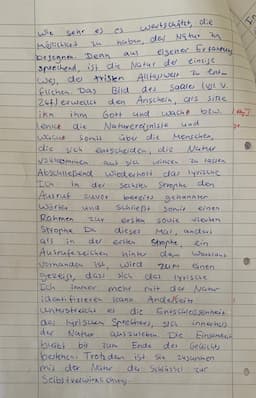 Wie sehr er es wertschätzt, die
Möglichkeit zu haben, der Natur zu
begegnen. Denn aus eigener Erfahrung
sprechend, ist die Natur der einzige
Weg, der tristen Alltagswelt zu ent-
fliehen. Das Bild des Saales (vgl. V.
24f.) erweckt den Anschein, als sitze
ihn ihm Gott und wacht bzw.
lenkt die Naturereignisse und
wacht somit über die Menschen,
die sich entscheiden, die Natur
vollkommen auf sich wirken zu lassen.
Abschließend wiederholt das lyrische
Ich in der sechsten Strophe den
Ausruf zuvor bereits genannten
Wörter und schließt somit einen
Rahmen zur ersten sowie vierten
Strophe. Da dieses Mal, anders
als in der ersten Strophe, ein
Ausrufezeichen hinter dem
vorhanden ist, wird zum einen
gezeigt, dass sich das lyrische
Ich immer mehr mit der Natur
identifizieren kann. Anderseits
unterstreicht es die Entschlossenheit
des lyrischen Sprechers, sich innerhalb
der Natur auszuleben. Die Einsamkeit
bleibt bis zum Ende des Gedichts
bestehen. Trotzdem ist sie zusammen
mit der Natur der Schlüssel zur
Selbstverwirklichung.